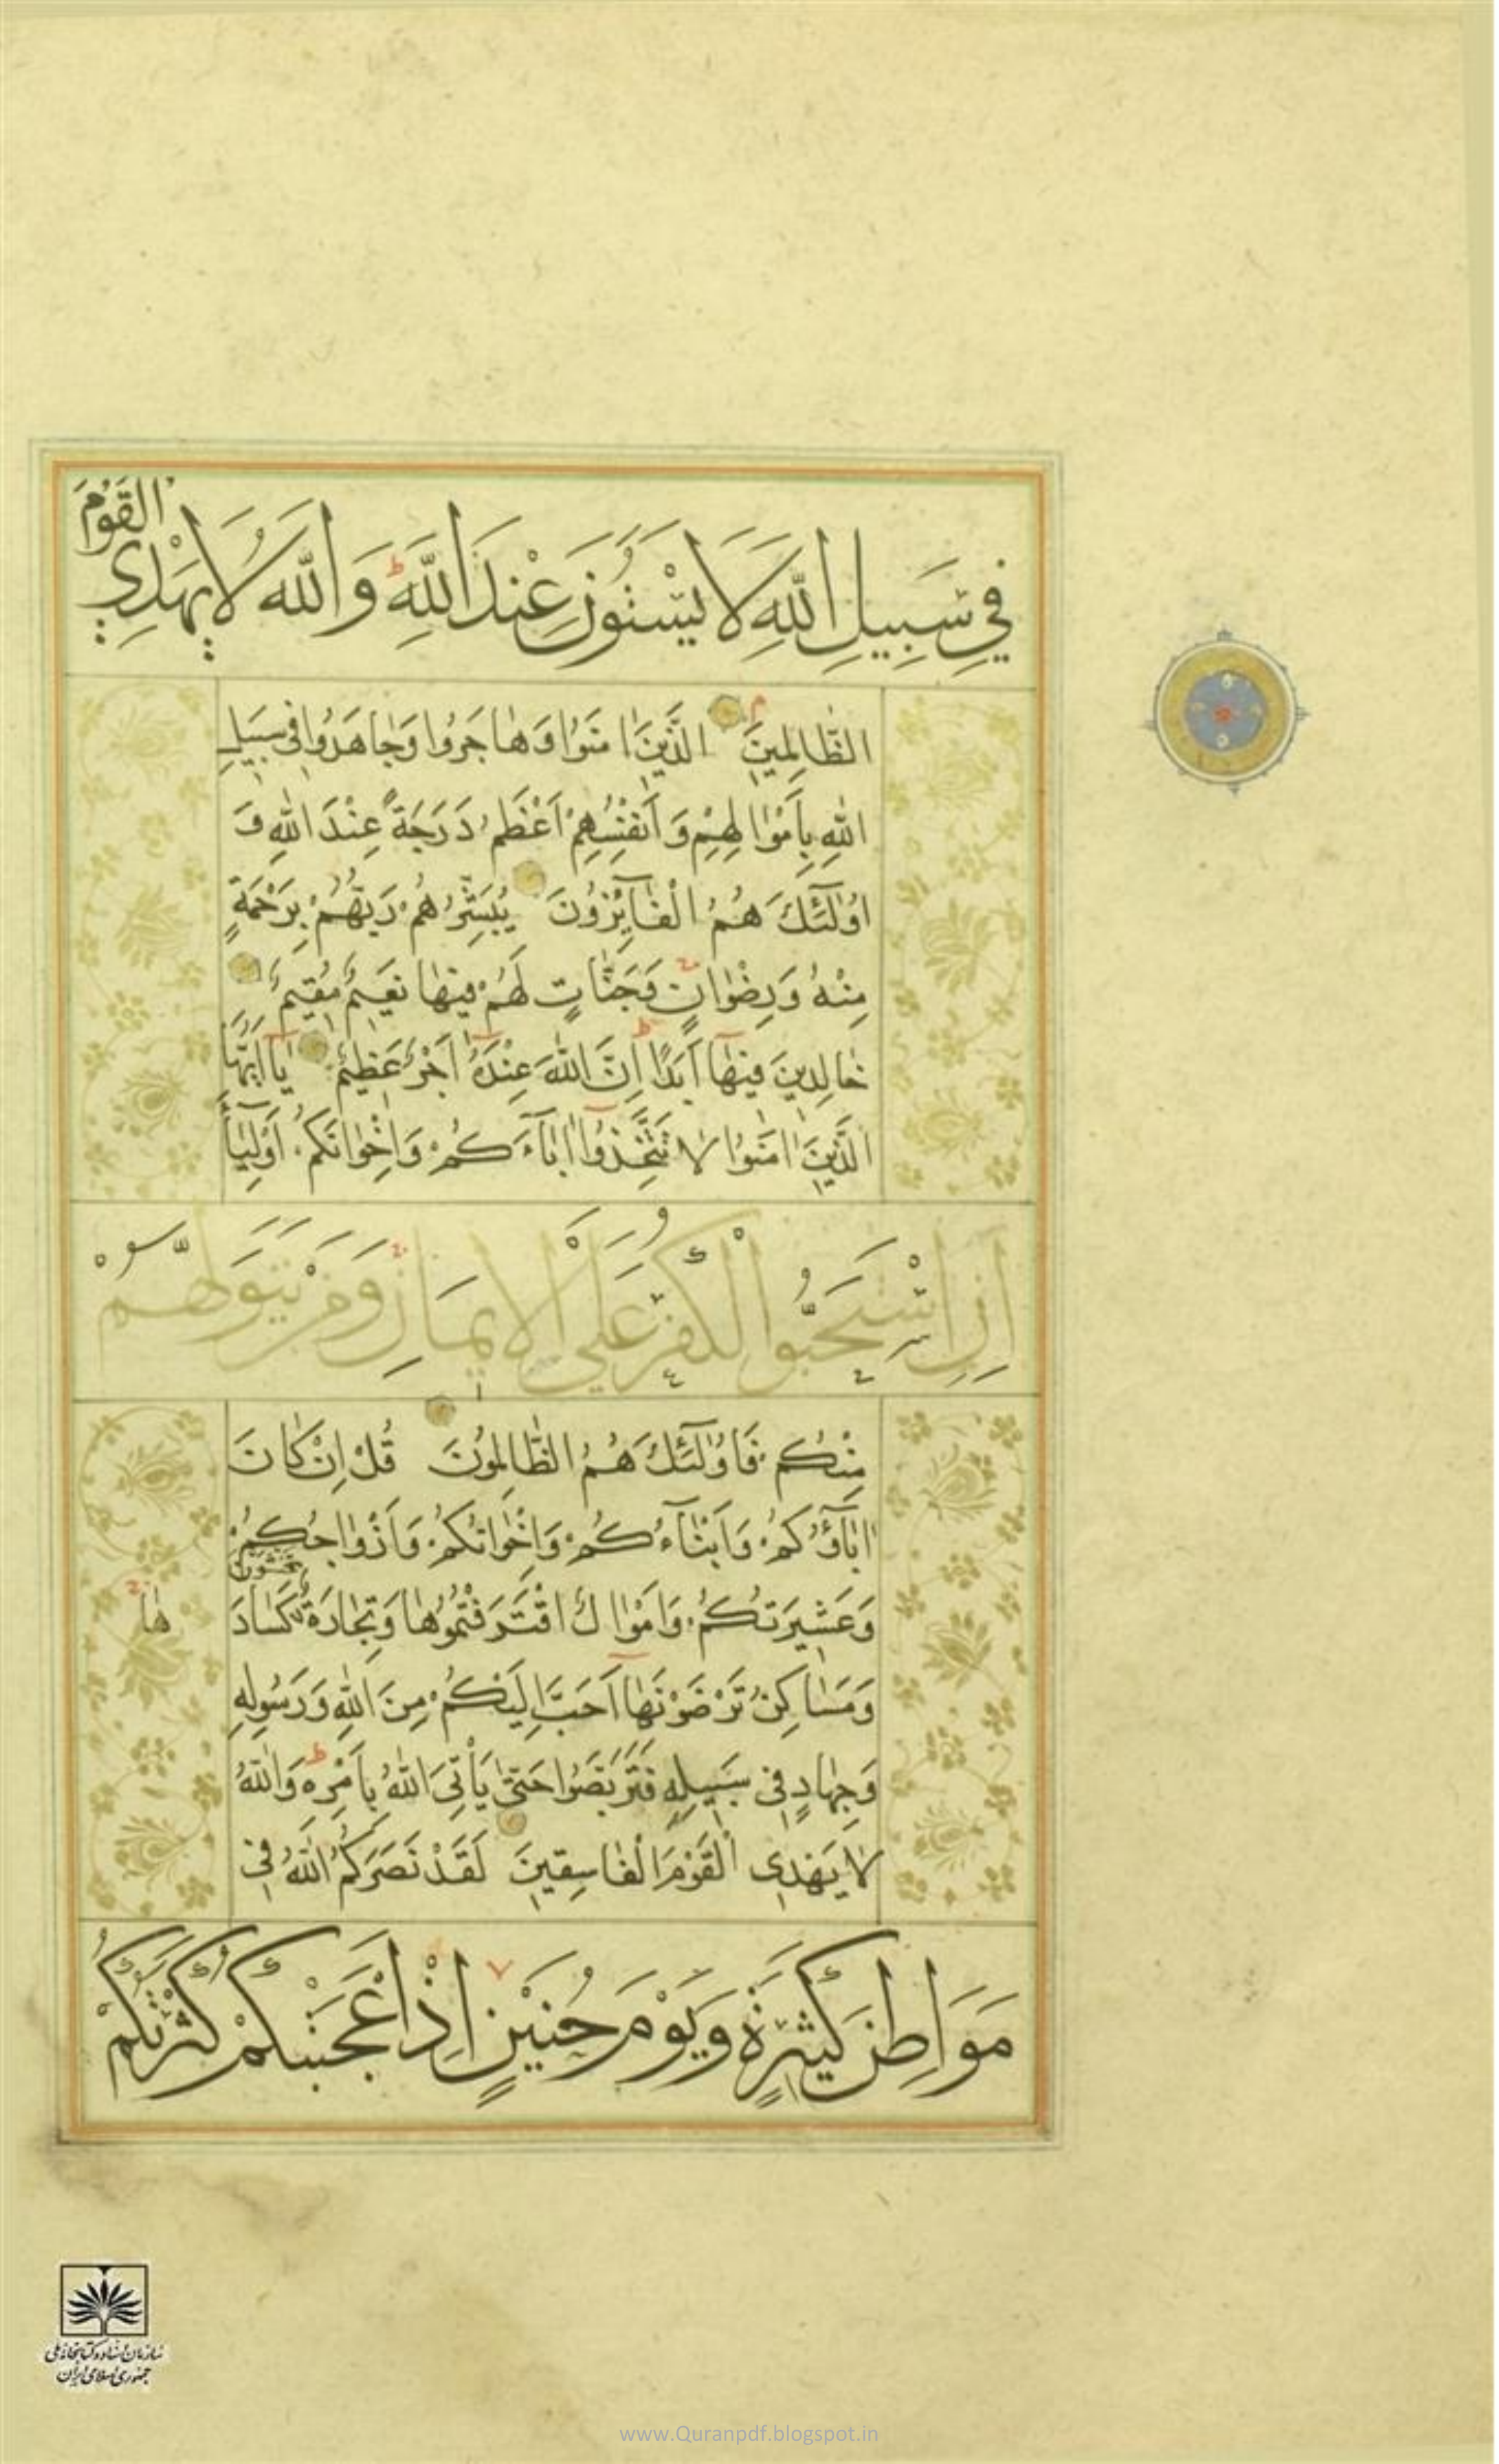 فِي سَبِيلِ اللَّهِ لَا يَسْتَوُنَ عِنْدَ اللَّهِ ط وَ اللَّهُ لَا يَهْدِي الْقَوْمَ
الظَّالِمِينَ الَّذِينَ اٰمَنُوا وَهٰاجَرُوا وَجٰاهَدُوا فِى سَبِيلِ
اللهِ بِاَمْوٰالِهِمْ وَ اَنْفُسِهِمْ اَعْظَمُ دَرَجَةً عِنْدَ اللهِ وَ
اُوْلٰٓئِكَ هُمُ الْفٰٓائِزُونَ يُبَشِّرُهُمْ رَبُّهُمْ بِرَحْمَةٍ
مِنْهُ وَرِضْوٰانٍ وَجَنّٰاتٍ لَهُمْ فِيهٰا نَعِيمٌ مُقِيمٌ
خٰالِدِينَ فِيهٰٓا اَبَدًا ط اِنَّ اللهَ عِنْدَهُٓ اَجْرٌ عَظِيمٌ يٰٓا اَيُّهَا
الَّذِينَ اٰمَنُوا لٰا تَتَّخِذُوٓا اٰبٰٓاءَكُمْ وَاِخْوٰانَكُمْ اَوْلِيٰٓاءَ
اِنِ اسْتَحَبُّوا الْكُفْرَ عَلَى الْاِيمَانِ وَمَنْ يَتَوَلَّهُمْ
مِنْكُمْ فَاُوْلٰٓئِكَ هُمُ الظّٰالِمُونَ قُلْ اِنْ كٰانَ
اٰبٰٓاؤُكُمْ وَاَبْنٰٓاءُكُمْ وَاِخْوٰانُكُمْ وَاَزْوٰاجُكُمْ
وَعَشِيرَتُكُمْ وَاَمْوٰالٌ اقْتَرَفْتُمُوهٰا وَتِجٰارَةٌ تَخْشَوْنَ كَسٰادَ
هٰا
وَمَسٰاكِنُ تَرْضَوْنَهٰٓا اَحَبَّ اِلَيْكُمْ مِنَ اللهِ وَرَسُولِهِ
وَجِهٰادٍ فِى سَبِيلِهِ فَتَرَبَّصُوا حَتّٰى يَأْتِىَ اللهُ بِاَمْرِهِ ط وَاللهُ
لٰا يَهْدِى الْقَوْمَ الْفٰاسِقِينَ لَقَدْ نَصَرَكُمُ اللهُ فِى
مَوَاطِنَ كَثِيرَةٍ وَيَوْمَ حُنَيْنٍ اِذْ اَعْجَبَتْكُمْ كَثْرَتُكُمْ
سازمان اسناد و کتابخانه ملی
جمهوری اسلامی ایران
www.Quranpdf.blogspot.in